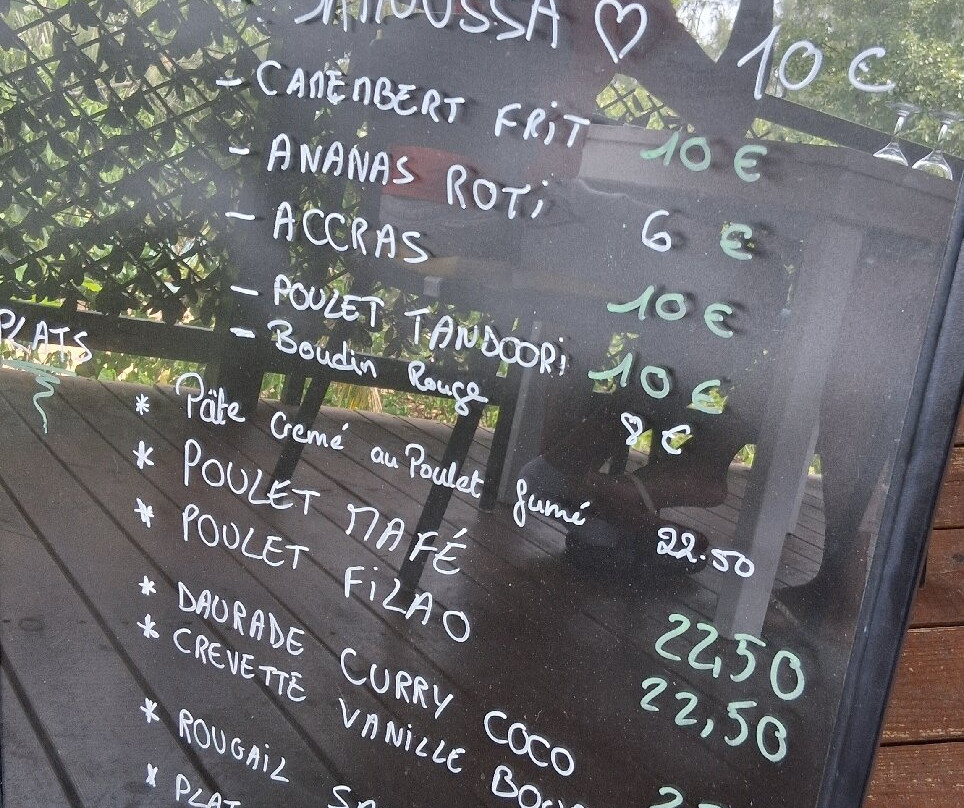 SAMOUSSA ♡ 10 €
- CAMEMBERT FRIT 10 €
- ANANAS ROTi 6 €
- ACCRAS 10 €
- POULET TANDOORi 10 €
- Boudin Rouge 8 €
PLATS
* Pâte Cremé au Poulet fumé 22.50
* POULET MAFÉ 22,50
* POULET FiLAO 22,50
* DAURADE CURRY COCO
* CREVETTE VANiLLE
* ROUGAiL
* PLAT